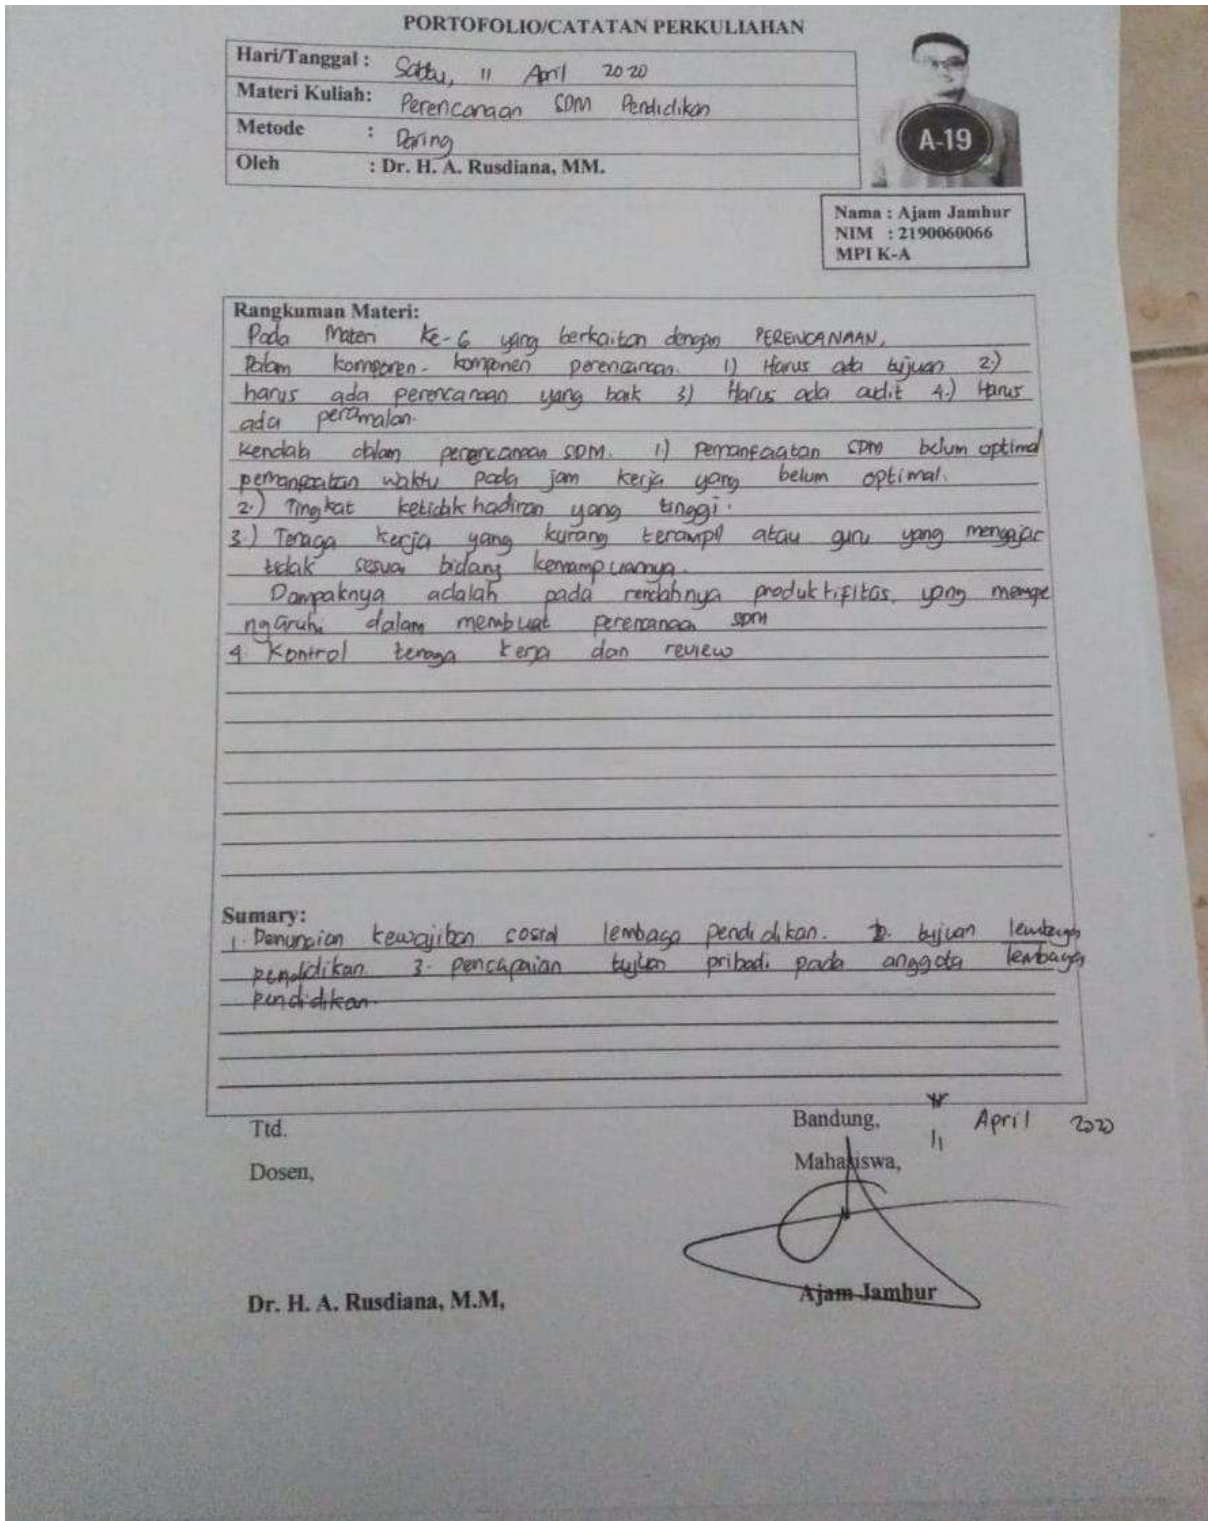 PORTOFOLIO/CATATAN PERKULIAHAN
Hari/Tanggal : Sabtu, 11 April 2020
Materi Kuliah: Perencanaan SDM Pendidikan
Metode : Daring
Oleh : Dr. H. A. Rusdiana, MM.
A-19
Nama : Ajam Jamhur
NIM : 2190060066
MPI K-A
Rangkuman Materi:
Pada Materi Ke-6 yang berkaitan dengan PERENCANAAN,
Dalam komponen-komponen perencanaan. 1) Harus ada tujuan 2)
harus ada perencanaan yang baik 3) Harus ada audit 4.) Harus
ada peramalan.
Kendala dalam perencanaan SDM. 1.) Pemanfaatan SDM belum optimal
pemanfaatan waktu pada jam kerja yang belum optimal.
2.) Tingkat ketidak hadiran yang tinggi.
3.) Tenaga kerja yang kurang terampil atau guru yang mengajar
tidak sesuai bidang kemampuannya.
Dampaknya adalah pada rendahnya produktifitas, yang mempe
ngaruhi dalam membuat perencanaan SDM
4 Kontrol tenaga kerja dan review
Sumary:
1. kewajiban sosial lembaga pendidikan. 2. tujuan lembaga
pendidikan 3. pencapaian tujuan pribadi pada anggota lembaga
pendidikan.
Ttd.
Bandung, 11 April 2020
Dosen,
Mahasiswa,
Dr. H. A. Rusdiana, M.M,
Ajam Jamhur